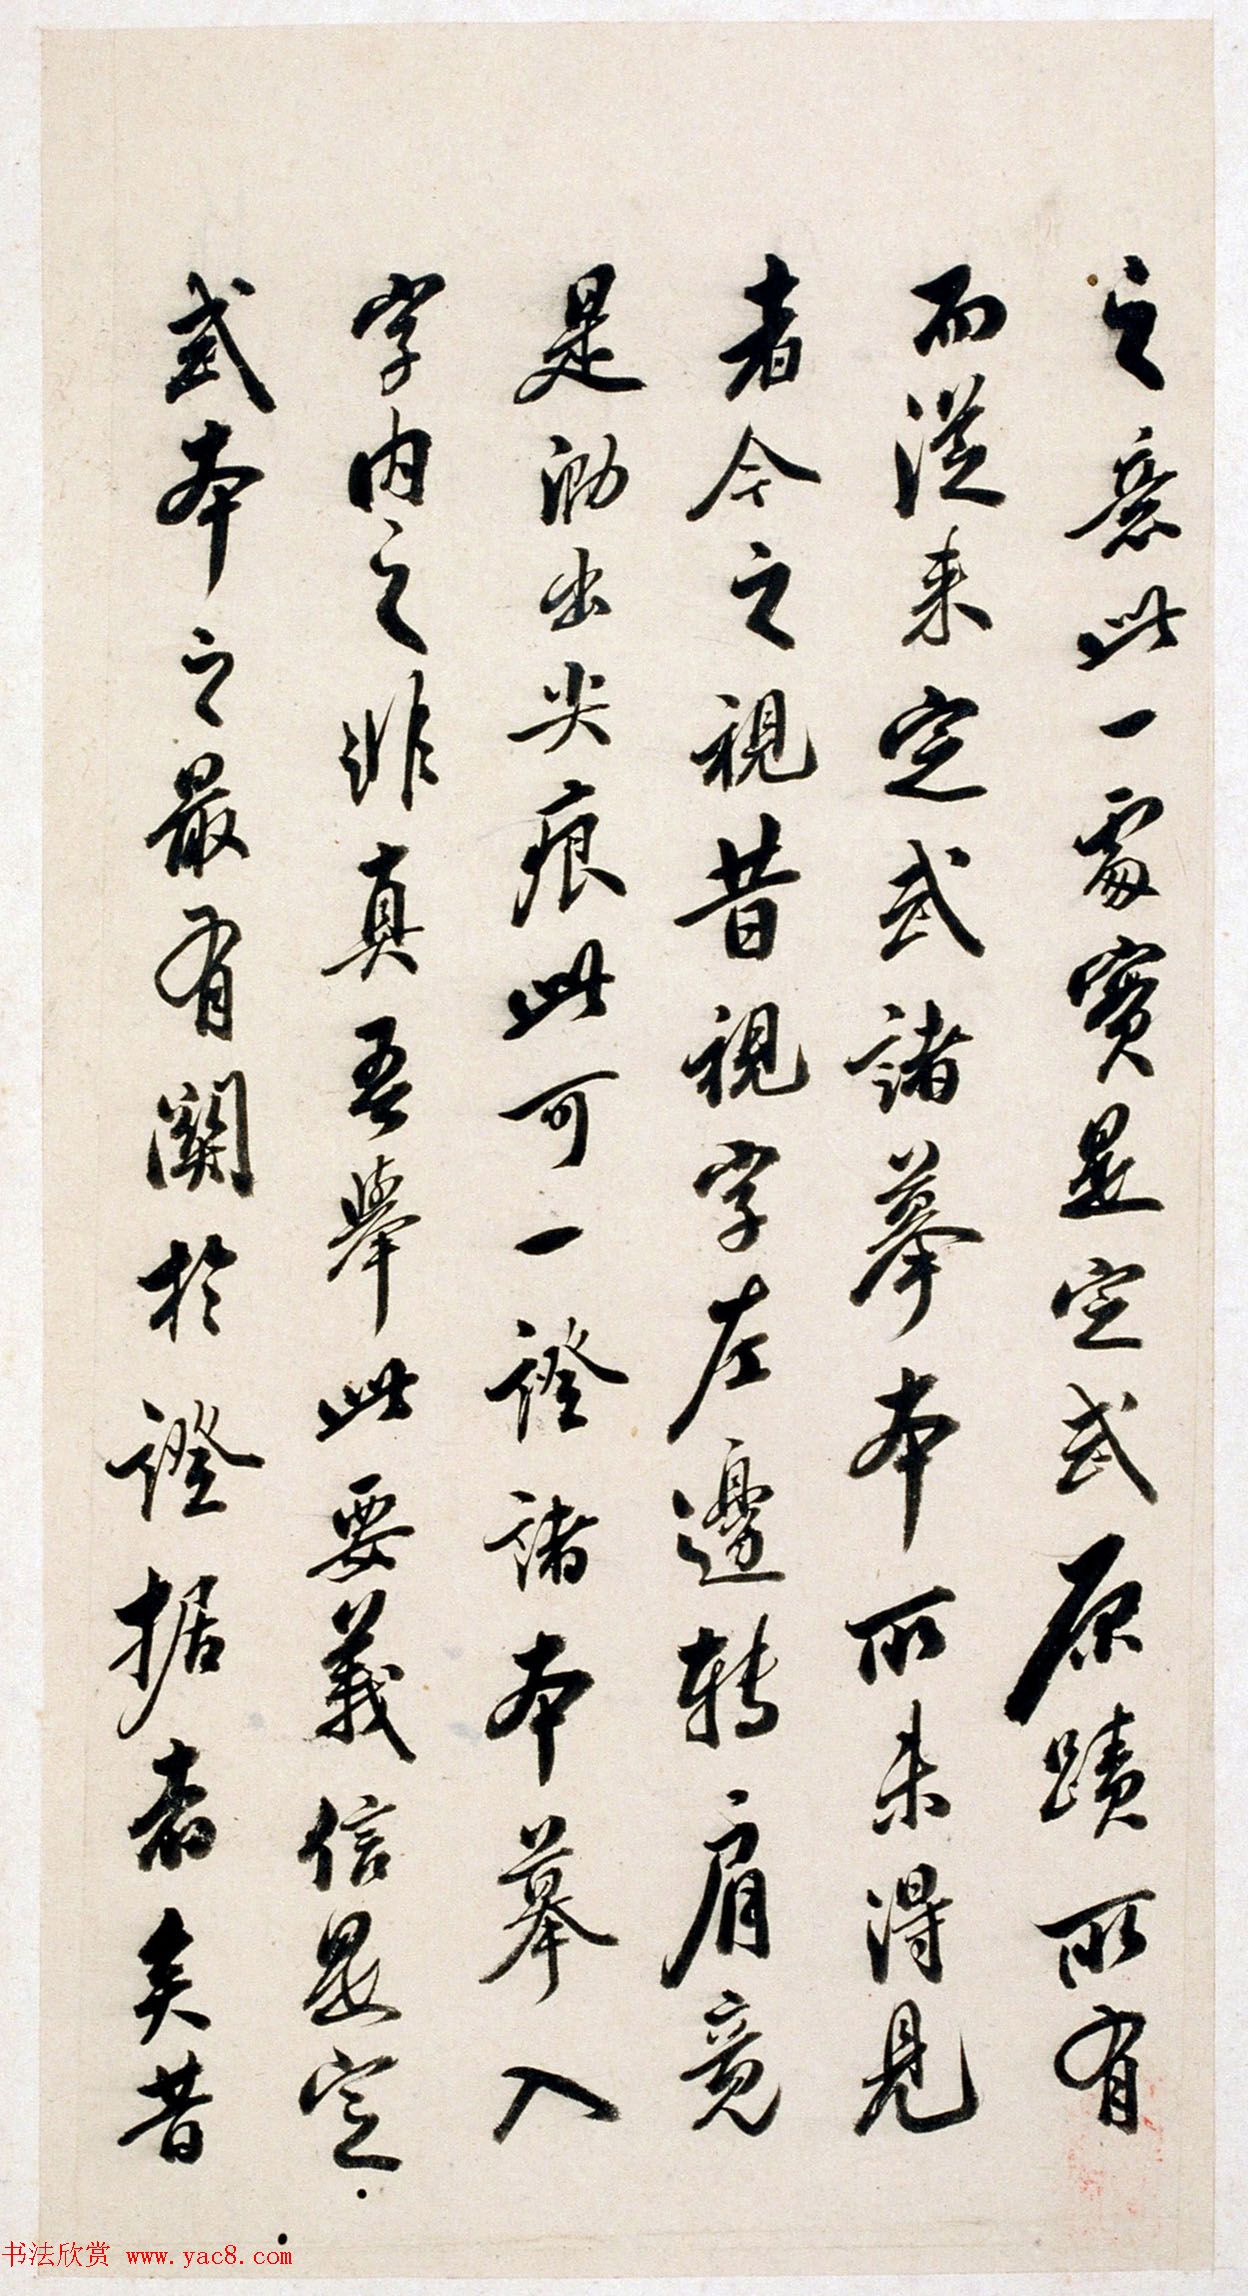 之意此一處實是定武原蹟所有
而從來定武諸摹本所未得見
者今之視昔視字左邊轉肩竟
是泐出尖痕此可一證諸本摹入
字內之非真吾舉此要義信是定
武本之最有關於證据者矣昔
书法欣赏 www.yac8.com